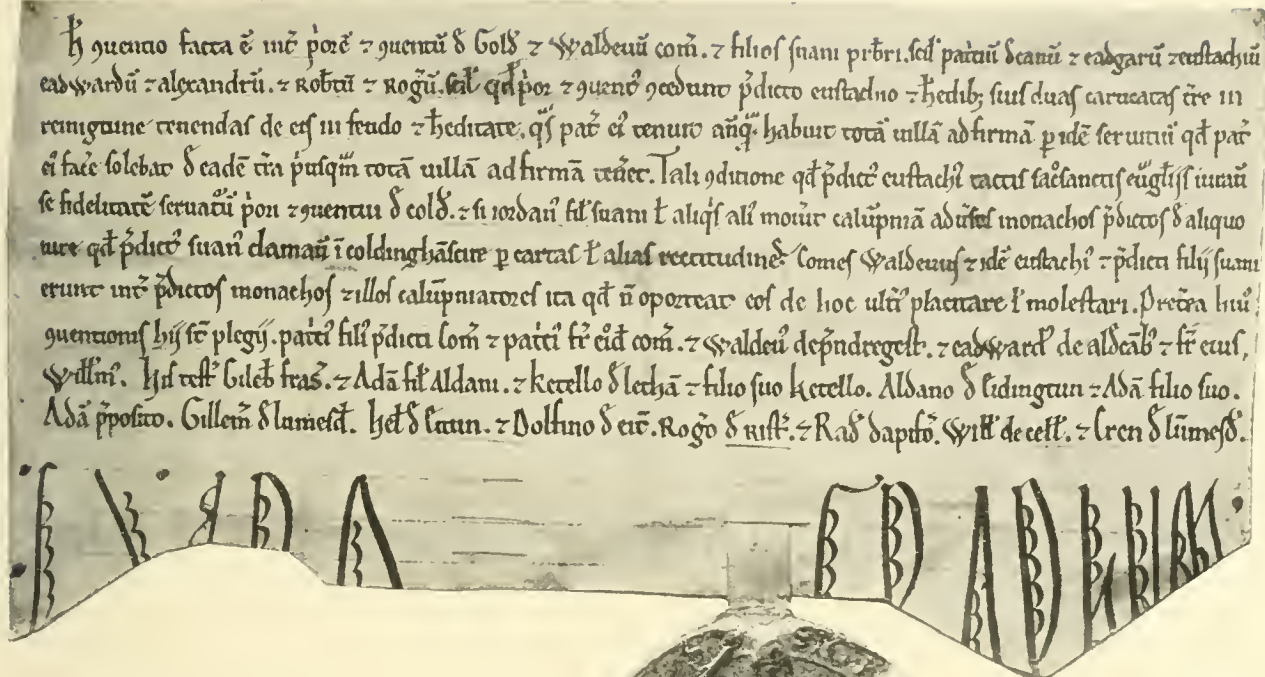 ħ ꝯuentio facta ē int̃ p̉orē ⁊ ꝯuentū đ Gold̃ ⁊ Waldeuū com̃. ⁊ filios suani pr̄bri. scił patciū decanū ⁊ eadgarū ⁊ eustachiū
eadwardū ⁊ alexandrū. ⁊ Rob̃tū ⁊ Rog̃ū. scił qđ p̉or ⁊ ꝯuent᾽ ꝯcedunt p̃dicto eustachio ⁊ ħedib; suis duas carucatas t̃re in
reinigtune tenendas de eis in feudo ⁊ ħeditate. q̃s pat̃ ei᾽ tenuit añq̃ habuit totā uillā ad firmā p idē seruitiū qđ pat̃
ei᾽ fac̃e solebat đ eadē t̃ra p̉usq̃m totā uillā ad firmā ten̄et. Tali ꝯditione qđ p̃dict᾽ eustachi᾽ tactis sac᾽sanctis eug̃liis iurauit
se fidelitatē seruatū p̉ori ⁊ ꝯuentui đ cold̃. ⁊ si iordan᾽ fil᾽ suani ł aliq̉s ali᾽ mouit calūpniā adũsus monachos p̃dictos đ aliquo
iure qđ p̃dict᾽ suan᾽ clamauit ī coldinghāscire p cartas ł alias rectitudines. Comes Waldeuus ⁊ idē eustachi᾽ ⁊ p̃dicti filij suani
erunt int̃ p̃dictos monachos ⁊ illos calūpniatores ita qđ ñ oporteat eos de hoc ult̃i᾽ placitare ł molestari. Pret̃ea hui᾽
ꝯuentionis hij st̃ plegij. patci᾽ fili᾽ p̃dicti Com̃ ⁊ patci᾽ fr̃ eiđ com̃. ⁊ Waldeu᾽ de p̃ndregest. ⁊ eadward᾽ de aldcāb᾽ ⁊ fr̃ eius,
Wiłłm᾽. His test᾽ Gileb̃ fras̃. ⁊ Adā fił Aldani. ⁊ ketello đ lechā ⁊ filio suo ketello. Aldano đ Eidingtun ⁊ Adā filio suo.
Adā p̃posito. Gillem̃ đ lumesđ. hel᾽ đ Citun. ⁊ Dolfino đ eit̃. Rog̃o đ rist̃. ⁊ Rad̃ dapif̃o. Wiłł de ceł. ⁊ Cren đ lūmesđ.